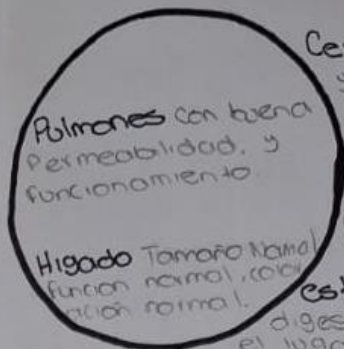 Pulmones con buena
Permeabilidad, y
funcionamiento.
Higado Tamaño Normal
funcion normal, color
ación normal.
Ce
y
est
diges
el luga